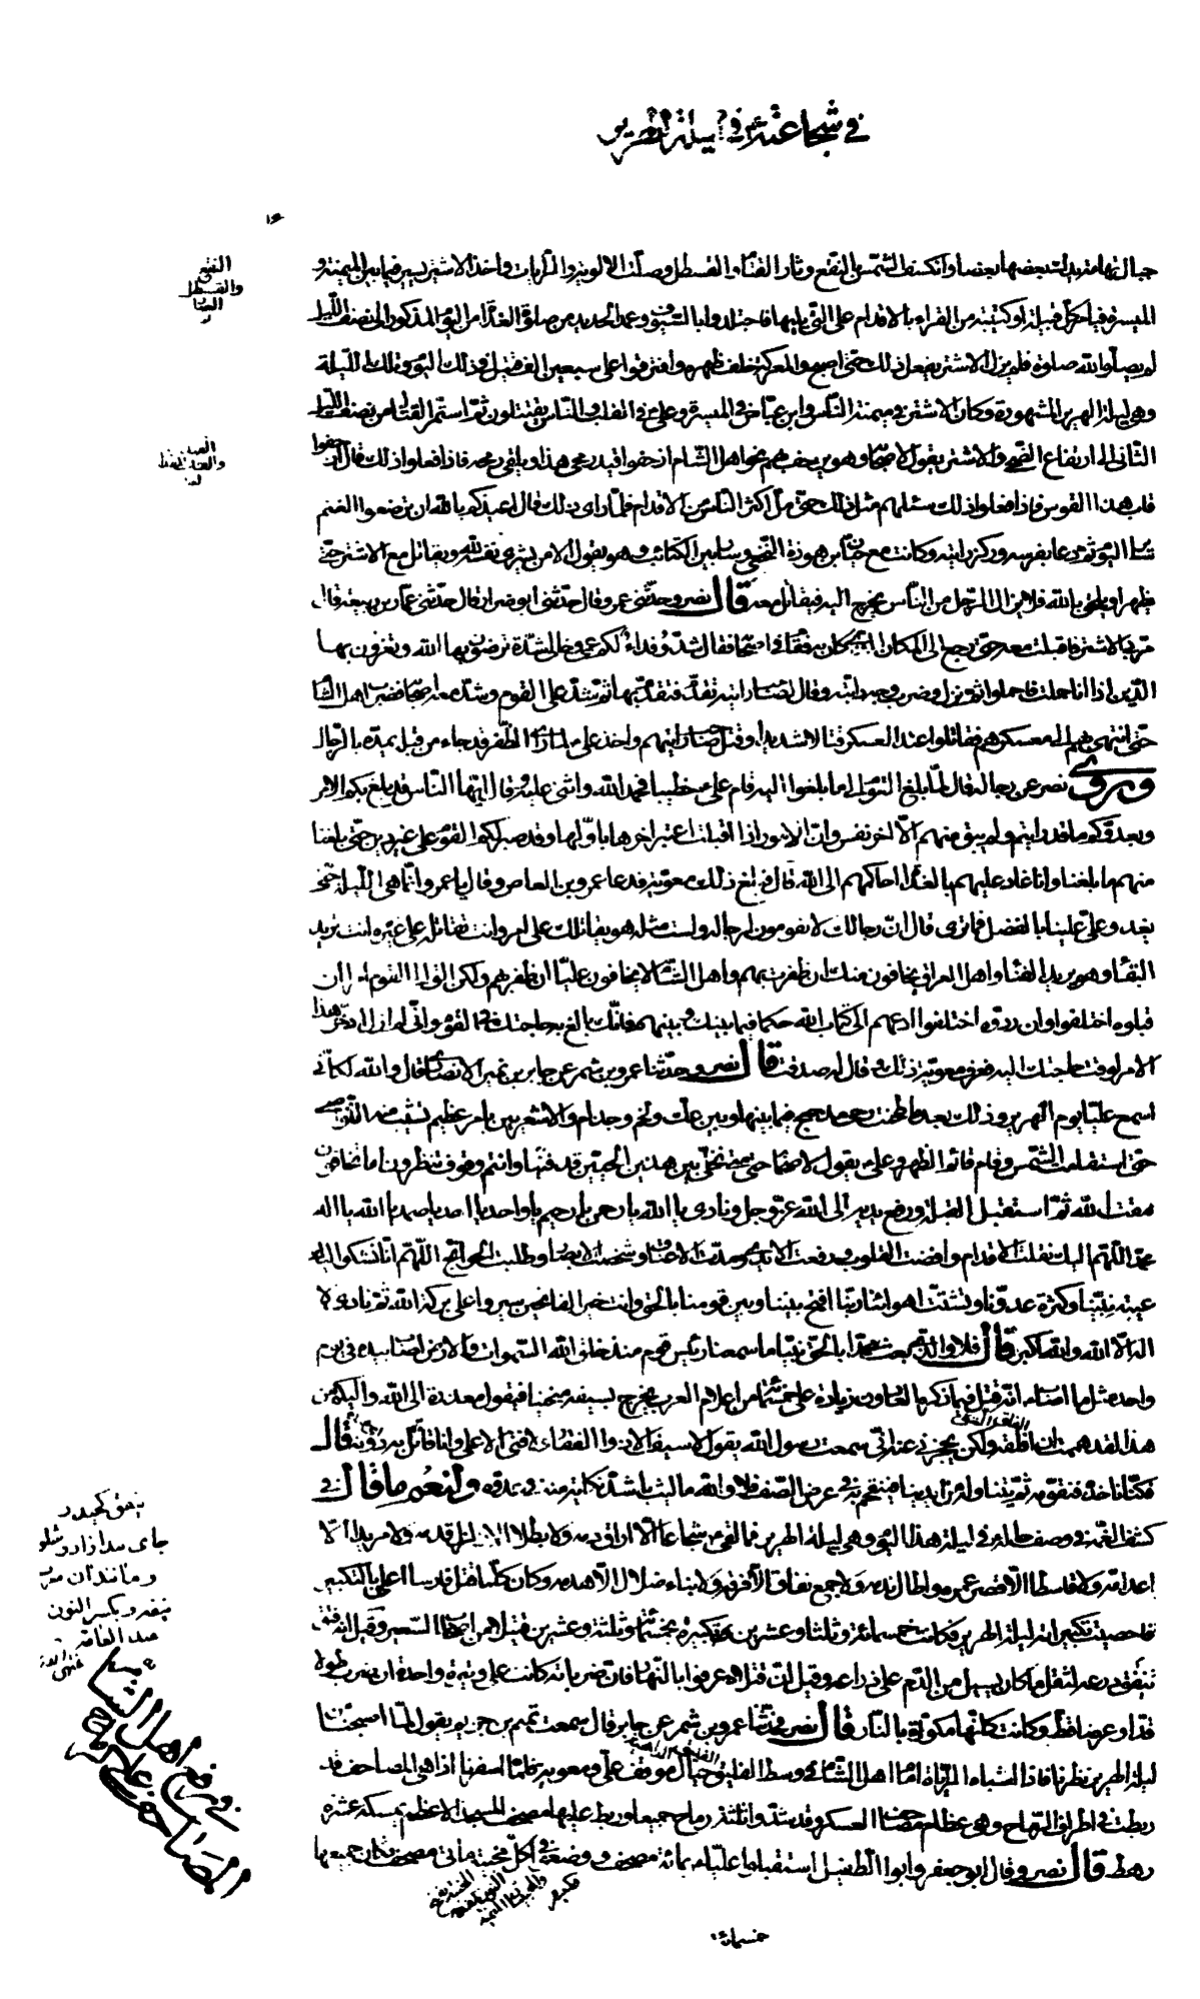 في شجاعته ع في ليلة الهرير
النقع
والقسطل
الغبار
جبال تهامة يدك بعضها بعضا وانكسف الشمس بالنقع وثار القتام والقسطل وضلت الالوية والرايات واخذ الاشتر يسير فيما بين الميمنة و
الميسرة فيامر كل قبيلة او كتيبة من القراء بالاقدام على التي يليها فاجتلدوا بالسيوف وعمد الحديد من صلوة الغداة من اليوم المذكور الى نصف الليل
لم يصلوا لله صلوة فلم يزل الاشتر يفعل ذلك حتى اصبح والمعركة خلف ظهره وافترقوا على سبعين الف قتيل في ذلك اليوم وتلك الليلة
وهي ليلة الهرير المشهودة وكان الاشتر في ميمنة الناس وابن عباس في الميسرة وعلي في القلب والناس يقتتلون ثم استمر القتال من نصف الليل
الثاني الى ارتفاع الضحى والاشتر يقول لاصحابه وهو يزحف بهم نحو اهل الشام ازحفوا قيد رمحي هذا ويلقي رمحه فاذا فعلوا ذلك قال ازحفوا
قاب هذا القوس فاذا فعلوا ذلك سئلهم مثل ذلك حتى مل اكثر الناس من الاقدام فلما راى ذلك قال اعيذكم بالله ان ترضعوا الغنم
سائر اليوم ثم دعا بفرسه وركز رايته وكانت مع حيان بن هوذة النخعي وسار بين الكتائب وهو يقول الا من يشري نفسه لله ويقاتل مع الاشتر حتى
يظهر او يلحق بالله فلا يزال الرجل من الناس يخرج اليه فيقاتل معه قال نصر وحدثني عمر وقال حدثني ابو ضرار قال حدثني عمار بن ربيعة قال
مر بي الاشتر فاقبلت معه حتى رجع الى المكان الذي كان به فقام في اصحابه فقال شدوا فداء لكم عمي وخالي شدة ترضون بها الله وتعزون بها
الدين اذا انا حملت فاحملوا ثم نزل وضرب وجه دابته وقال لصاحب رايته تقدم فتقدم بها ثم شد على القوم وشد معه اصحابه فضرب اهل الشام
حتى انتهى بهم الى معسكرهم فقاتلوا عند العسكر قتالا شديدا وقتل صاحب رايتهم واخذ علي لما راى الظفر قد جاء من قبله يمده بالرجال
وروى نصر عن رجاله قال لما بلغ القوم الى ما بلغوا اليه قام علي خطيبا فحمد الله واثنى عليه وقال ايها الناس قد بلغ بكم الامر
وبعدوكم ما قد رايتم ولم يبق منهم الا آخر نفس وان الامور اذا اقبلت اعتبر اخرها باولها وقد صبر لكم القوم على غير دين حتى بلغنا
منهم ما بلغنا وانا غاد عليهم بالغداة احاكمهم الى الله قال فبلغ ذلك معوية فدعا عمرو بن العاص وقال يا عمرو انما هي الليلة حتى
يغدو علي علينا بالفصل فما ترى قال ان رجالك لا يقومون لرجاله ولست مثله هو يقاتلك على امر وانت تقاتله على غيره انت تريد
البقاء وهو يريد الفناء واهل العراق يخافون منك ان ظفرت بهم واهل الشام لا يخافون عليا ان ظفر بهم ولكن الق الى القوم امرا ان
قبلوه اختلفوا وان ردوه اختلفوا ادعهم الى كتاب الله حكما فيما بينك وبينهم فانك بالغ به حاجتك في القوم واني لم ازل ادخر هذا
الامر لوقت حاجتك اليه فعرف معوية ذلك وقال له صدقت قال نصر وحدثنا عمرو بن شمر عن جابر بن نمير الانصاري قال والله لكاني
اسمع عليا يوم الهرير وذلك بعد ما طحنت رحى مذحج فيما بينها وبين عك ولخم وجذام والاشعريين بامر عظيم تشيب منه النواصي
حتى استقلت الشمس وقام قائم الظهر وعلي يقول لاصحابه حتى متى نخلي بين هذين الحيين قد فنيا وانتم وقوف تنظرون اما تخافون
مقت الله ثم استقبل القبلة ورفع يديه الى الله عز وجل ونادى يا الله يا رحمن يا رحيم يا واحد يا احد يا صمد يا الله يا اله
محمد اللهم اليك نقلت الاقدام وافضت القلوب ورفعت الايدي ومدت الاعناق وشخصت الابصار وطلبت الحوائج اللهم انا نشكو اليك
غيبة نبينا وكثرة عدونا وتشتت اهوائنا ربنا افتح بيننا وبين قومنا بالحق وانت خير الفاتحين سيروا على بركة الله ثم نادى لا
اله الا الله والله اكبر قال فلا والذي بعث محمدا بالحق نبيا ما سمعنا رئيس قوم منذ خلق الله السموات والارض اصاب بيده في يوم
واحد مثل ما اصاب انه قتل فيما ذكر العادون زيادة على خمسمائة من اعلام العرب يخرج بسيفه منحنيا فيقول معذرة الى الله واليكم من
هذا لقد هممت ان افلقه ولكن يحجزني عنه اني سمعت رسول الله يقول لا سيف الا ذو الفقار ولا فتى الا علي وانا اقاتل به دونه قال
فكنا ناخذه فنقومه ثم يتناوله من ايدينا فيقتحم به في عرض الصف فلا والله ما ليث باشد نكاية منه في عدوه وانعم ما قال في
كشف الغمة في وصف حاله في ليلة هذا اليوم وهي ليلة الهرير فما لقي شجاعا الا اراق دمه ولا بطلا الا زلزل قدمه ولا مريدا الا
اعدمه ولا قاسطا الا قصر عمره واطال ندمه ولا جمع نفاق الا فرقه ولا بناء ضلال الا هدمه وكان كلما قتل فارسا اعلن بالتكبير
فاحصيت تكبيراته ليلة الهرير فكانت خمسمائة وثلثا وعشرين تكبيرة بخمسمائة وثلثة وعشرين قتيلا من اصحاب السعير وقيل انه في
تفتق درعه لثقل ما كان يسيل من الدم على ذراعه وقيل ان قتلاه عرفوا بالنهار فان ضرباته كانت على وتيرة واحدة ان ضرب طولا
قد او عرضا قط وكانت كانها مكواة بالنار قال نصر فحدثنا عمرو بن شمر عن جابر قال سمعت تميم بن حزيم يقول لما اصبحنا من
ليلة الهرير نظرنا فاذا اشباه الرايات امام اهل الشام في وسط الفيلق حيال موقف علي ومعوية فلما اسفرنا اذا هي المصاحف قد
ربطت في اطراف الرماح وهي عظام مصاحف العسكر وقد شدوا ثلثة رماح جميعا وربط عليها مصحف المسجد الاعظم يمسكه عشرة
رهط قال نصر وقال ابو جعفر وابو الطفيل استقبلوا عليا بمائة مصحف ووضعوا في كل مجنبة مائتي مصحف فكان جميعها
خمسمائة
في رفع اهل الشام
المصاحف على الرماح